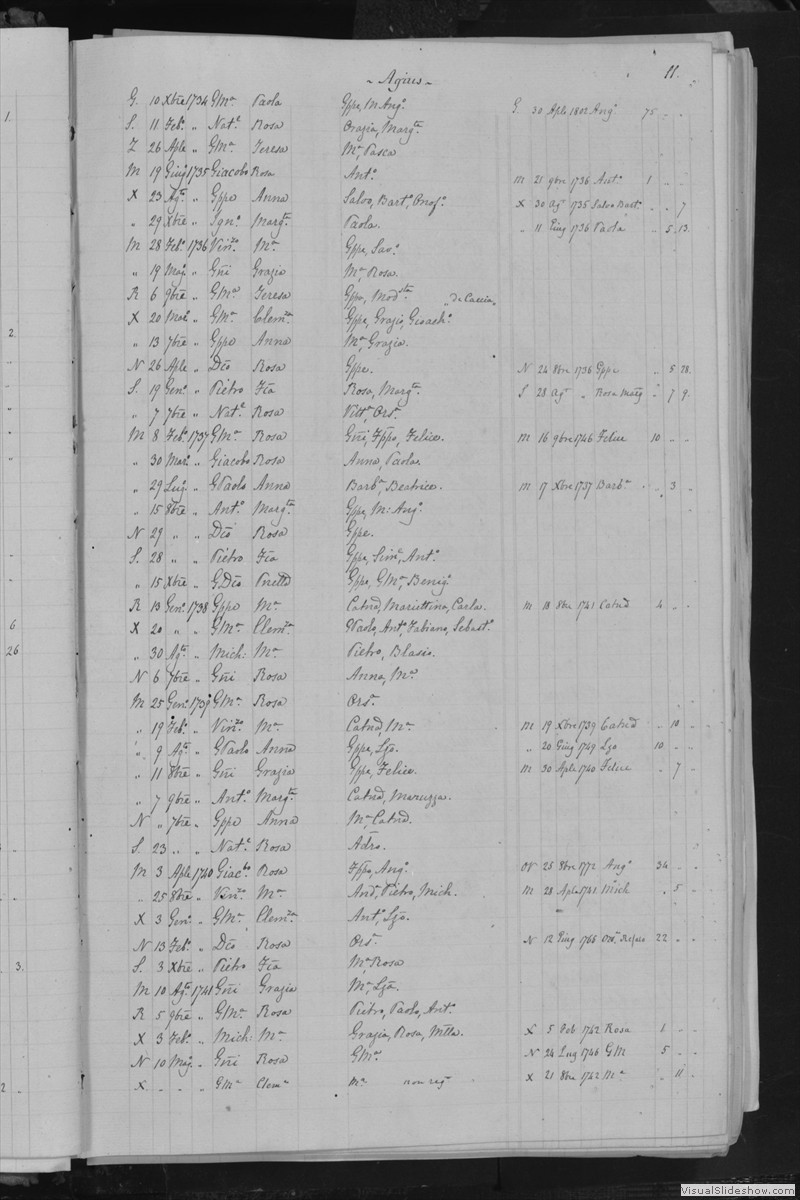 11.
- Agius -
G. 10 Xbre 1734 GMa. Paola Gppe, M. Ango. G. 30 Aple 1802 Ango. 75 " "
S. 11 Febo. " Nate. Rosa Orazia, Margta.
Z 26 Aple " GMa. Teresa Ma. Pasca
M 19 Giug 1735 Giacobo Rosa Anto. M 21 9bre 1736 Anto. 1 " "
X 23 Agto. " Gppe Anna Salvo, Barto, Onofo. X 30 Ago 1735 Salvo Barto. " " 7
" 29 Xbre " Igno. Margta. Paola. " 11 Giug 1736 Paola " 5 13.
M 28 Febo. 1736 Vinzo. Ma. Gppe, Savo.
" 19 Mago. " Gni Grazia Ma, Rosa.
R 6 9bre " GMa. Teresa Gppa, Modsta. "de Caccia"
X 20 Maro. " GMa. Clemza. Gppe, Grazio, Gioacho.
" 13 7bre " Gppe Anna Ma, Grazia.
N 26 Aple " Dco Rosa Gppe. N 24 8bre 1736 Gppe " 5 28.
S. 19 Geno. " Pietro Fca Rosa, Margta. S 28 Ago " Rosa Marg " 7 9.
" 7 7bre " Nate. Rosa Vitta, Orsa.
M 8 Febo. 1737 GMa. Rosa Gni, Fppo, Felice. M 16 9bre 1746 Felice 10 " "
" 30 Maro. " Giacobo Rosa Anna, Paola.
" 29 Lug. " GPaolo Anna Barba, Beatrice. M 17 Xbre 1737 Barba. " 3 "
" 15 8bre " Anto. Margta. Gppe, M. Ango.
N 29 " " Dco Rosa Gppe.
S. 28 " " Pietro Fca Gppe, Sime, Anto.
" 15 Xbre " GDco Gppe, GMa, Benigo.
R 13 Geno. 1738 Gppe Ma. Catnd, Mariettina, Carla. M 18 8bre 1741 Catnd 4 " "
X 20 " " GMa. Clemza. GPaolo, Anto, Fabiano, Sebasto.
" 30 Ago. " Mich: Ma. Pietro, Blasio.
N 6 7bre " Gni Rosa Anna, Ma.
M 25 Geno. 1739 GMa. Rosa Orsa.
" 19 Febo. " Vinzo. Ma. Catnd, Ma. M 19 Xbre 1739 Catnd " 10 "
" 9 Ago. " GPaolo Anna Gppe, Lzo. " 20 Giug 1749 Lzo 10 " "
" 11 8bre " Gni Grazia Gppa, Felice. M 30 Aple 1740 Felice " 7 "
" 7 9bre " Anto. Margta. Catnd, Maruzza.
N " 7bre " Gppe Anna Ma, Catnd.
S. 23 " " Nate. Rosa Adro.
M 3 Aple 1740 Giacbo Rosa Fppo, Ango. 25 8bre 1772 Ango 34 " "
" 25 8bre " Vinzo. Ma. And, Pietro, Mich. M 28 Aple 1741 Mich " 5 "
X 3 Geno. " GMa. Clemza. Anto, Lzo.
N 13 Febo. " Dco Rosa Orsa. N 12 Giug 1766 22 " "
S. 3 Xbre " Pietro Fca Ma Rosa
M 10 Ago. 1741 Gni Grazia Ma, Lza.
R 5 9bre " GMa. Rosa Pietro, Paolo, Anto.
X 3 Febo. " Mich: Ma. Grazia, Rosa, Mtta. X 5 Feb 1742 Rosa 1 " "
N 10 Mag. " Gni Rosa GMa. N 24 Lug 1746 GM 5 " "
X " " " GMa Clema Ma non rego X 21 8bre 1742 Ma " 11 "
1.
2.
6
26
3.
2
VisualSlideshow.com